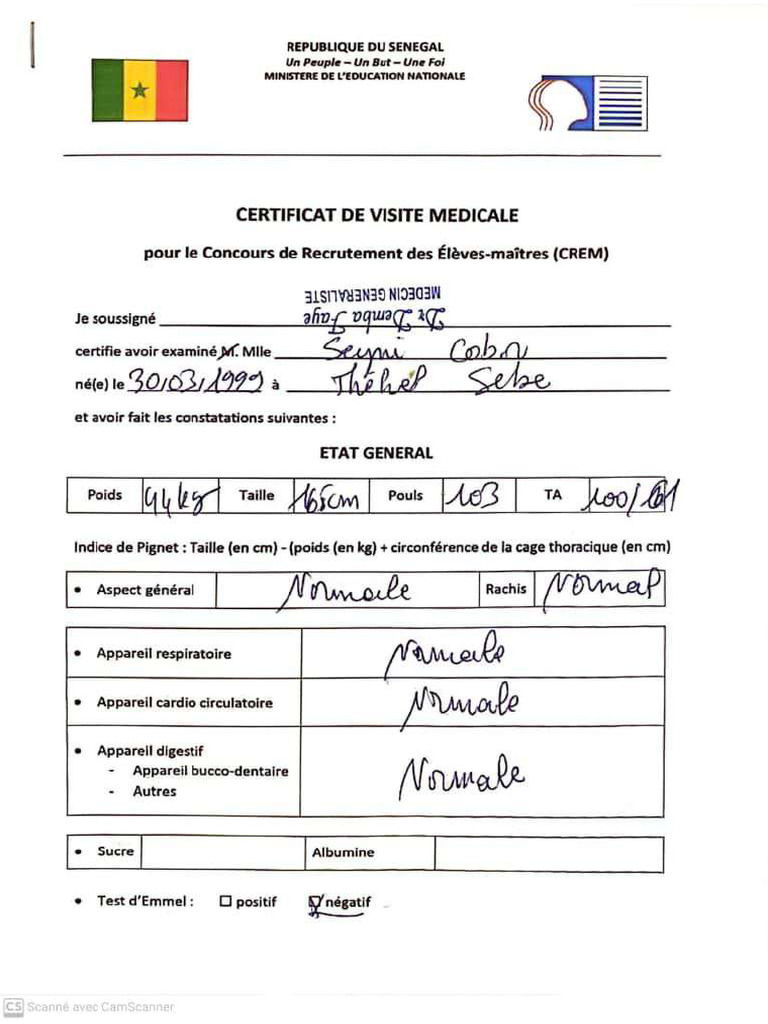 REPUBLIQUE DU SENEGAL
Un Peuple – Un But – Une Foi
MINISTERE DE L'EDUCATION NATIONALE
CERTIFICAT DE VISITE MEDICALE
pour le Concours de Recrutement des Élèves-maîtres (CREM)
MEDECIN GENERALISTE
Je soussigné Dr Demba Faye
certifie avoir examiné M. Mlle Seyni
né(e) le 30/03/1999 à
et avoir fait les constatations suivantes :
ETAT GENERAL
Poids 94 kg Taille 165cm Pouls 103 TA 100/
Indice de Pignet : Taille (en cm) - (poids (en kg) + circonférence de la cage thoracique (en cm)
• Aspect général Normale Rachis Normal
• Appareil respiratoire Normale
• Appareil cardio circulatoire Normale
• Appareil digestif Normale
- Appareil bucco-dentaire
- Autres
• Sucre Albumine
• Test d'Emmel : ☐ positif ☑ négatif
CS Scanné avec CamScanner